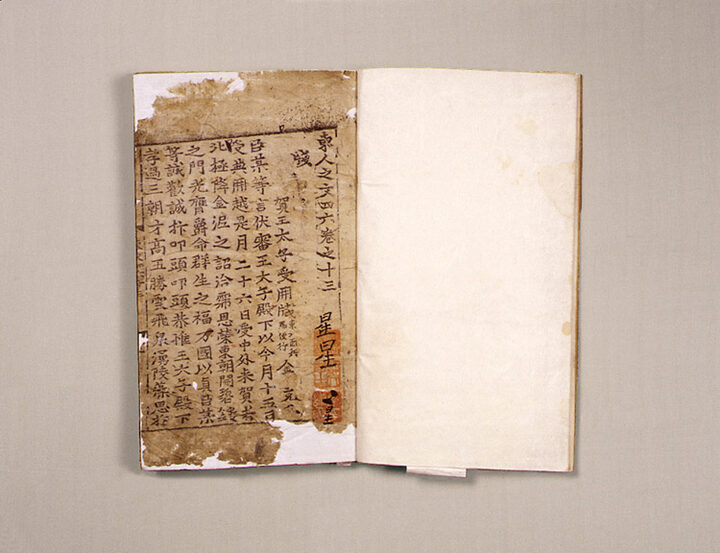 東人之文四六卷之十三
牋
賀王太子受册牋 金
臣某等言伏審王太子殿下以今月十五日
受典册越是月二十六日受中外来賀者
北極降金泥之詔洽霈恩榮東朝開
之門光膺爵命群生之福万國以貞臣某
等誠歡誠抃叩頭叩頭恭惟王太子殿下
孝過三朝才高五勝雲飛泉湧
星星